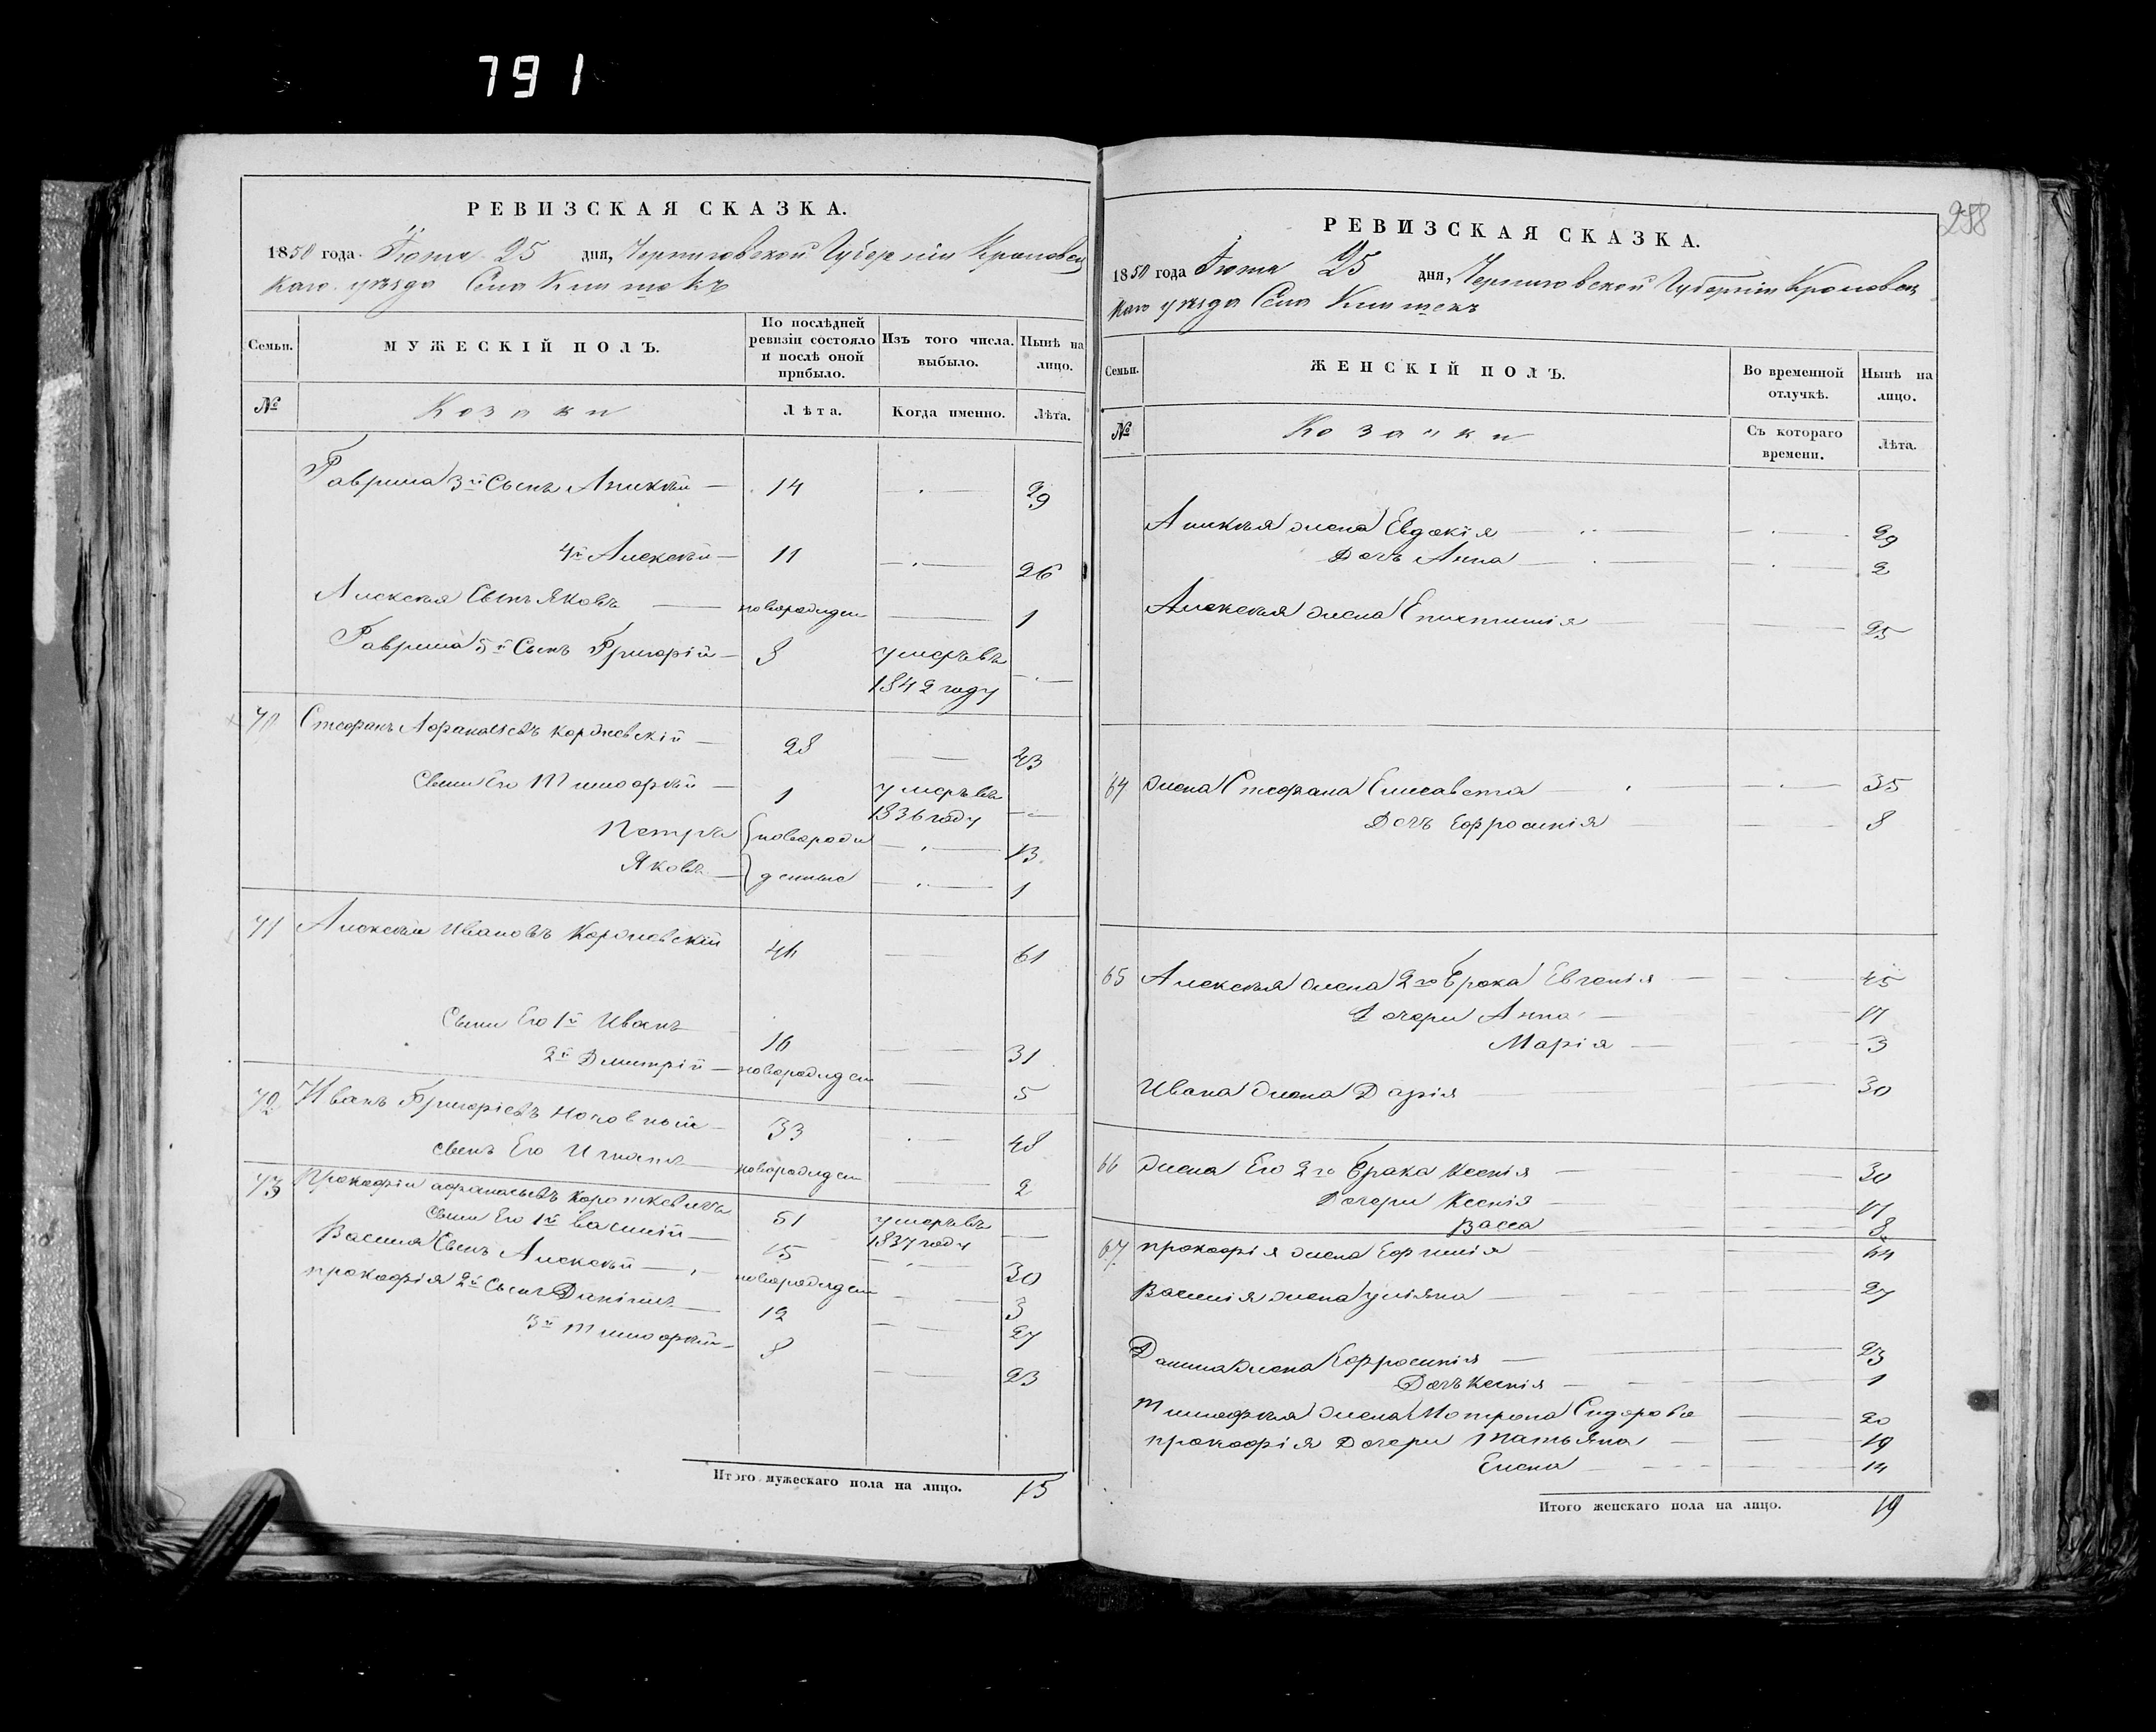 791
РЕВИЗСКАЯ СКАЗКА.
1850 года Июня 25 дня, Черниговской Губерніи Кролевец
каго уѣзда Села
Семьи.
МУЖЕСКІЙ ПОЛЪ.
По послѣдней ревизіи состояло и послѣ оной прибыло.
Изъ того числа выбыло.
Нынѣ на лицо.
№
Козаки
Лѣта.
Когда именно.
Лѣта.
Гаврила 3й Сынъ Аникій 14 29
4й Алексѣй 11 26
Алексѣя Сынъ Яковъ новорожден 1
Гаврила 5й Сынъ Григорій 8 умеръ въ
1842 году
70 Стефанъ Афанасіевъ 28 43
Сыни Его Тимофѣй 1 умеръ въ
1836 году
Петръ новорож 13
Яковъ денные 1
71 Алексѣй Ивановъ 46 61
Сыни Его 1й Иванъ 16 31
2й Дмитрій новорожден 5
72 Иванъ Григоріевъ 33 48
сынъ Его Игнатъ новорожден 2
73 Прокофій афанасьевъ 51 умеръ въ
1837 году
сыни Его 1й василій 15 30
Василія Сынъ Алексѣй новорожден 3
прокофія 2й Сынъ Даніилъ 12 27
3й тимофѣй 8 23
Итого мужескаго пола на лицо. 15
258
РЕВИЗСКАЯ СКАЗКА.
1850 года Июня 25 дня, Черниговской Губерніи Кролевец
каго уѣзда Села
Семьи.
ЖЕНСКІЙ ПОЛЪ.
Во временной отлучкѣ.
Нынѣ на лицо.
№
Козачки
Съ котораго времени.
Лѣта.
Аникія жена Евдокія 29
Дочь Анна 2
Алексѣя жена Епистимія 25
64 жена Стефана Елисавета 35
Дочь Ефросинія 8
65 Алексѣя жена 2го брака Евгенія 45
Дочери Анна 17
Марія 3
Ивана жена Дарія 30
66 жена Его 2го брака Ксенія 30
Дочери Ксенія
Васса 8
67 прокофія жена Ефимія
Василія жена уліяна 27
Данила жена Ефросинія 23
Дочь Ксенія 1
тимофѣя жена Мотрона Сидорова 20
прокофія Дочери татьяна 19
Елена 14
Итого женскаго пола на лицо. 19